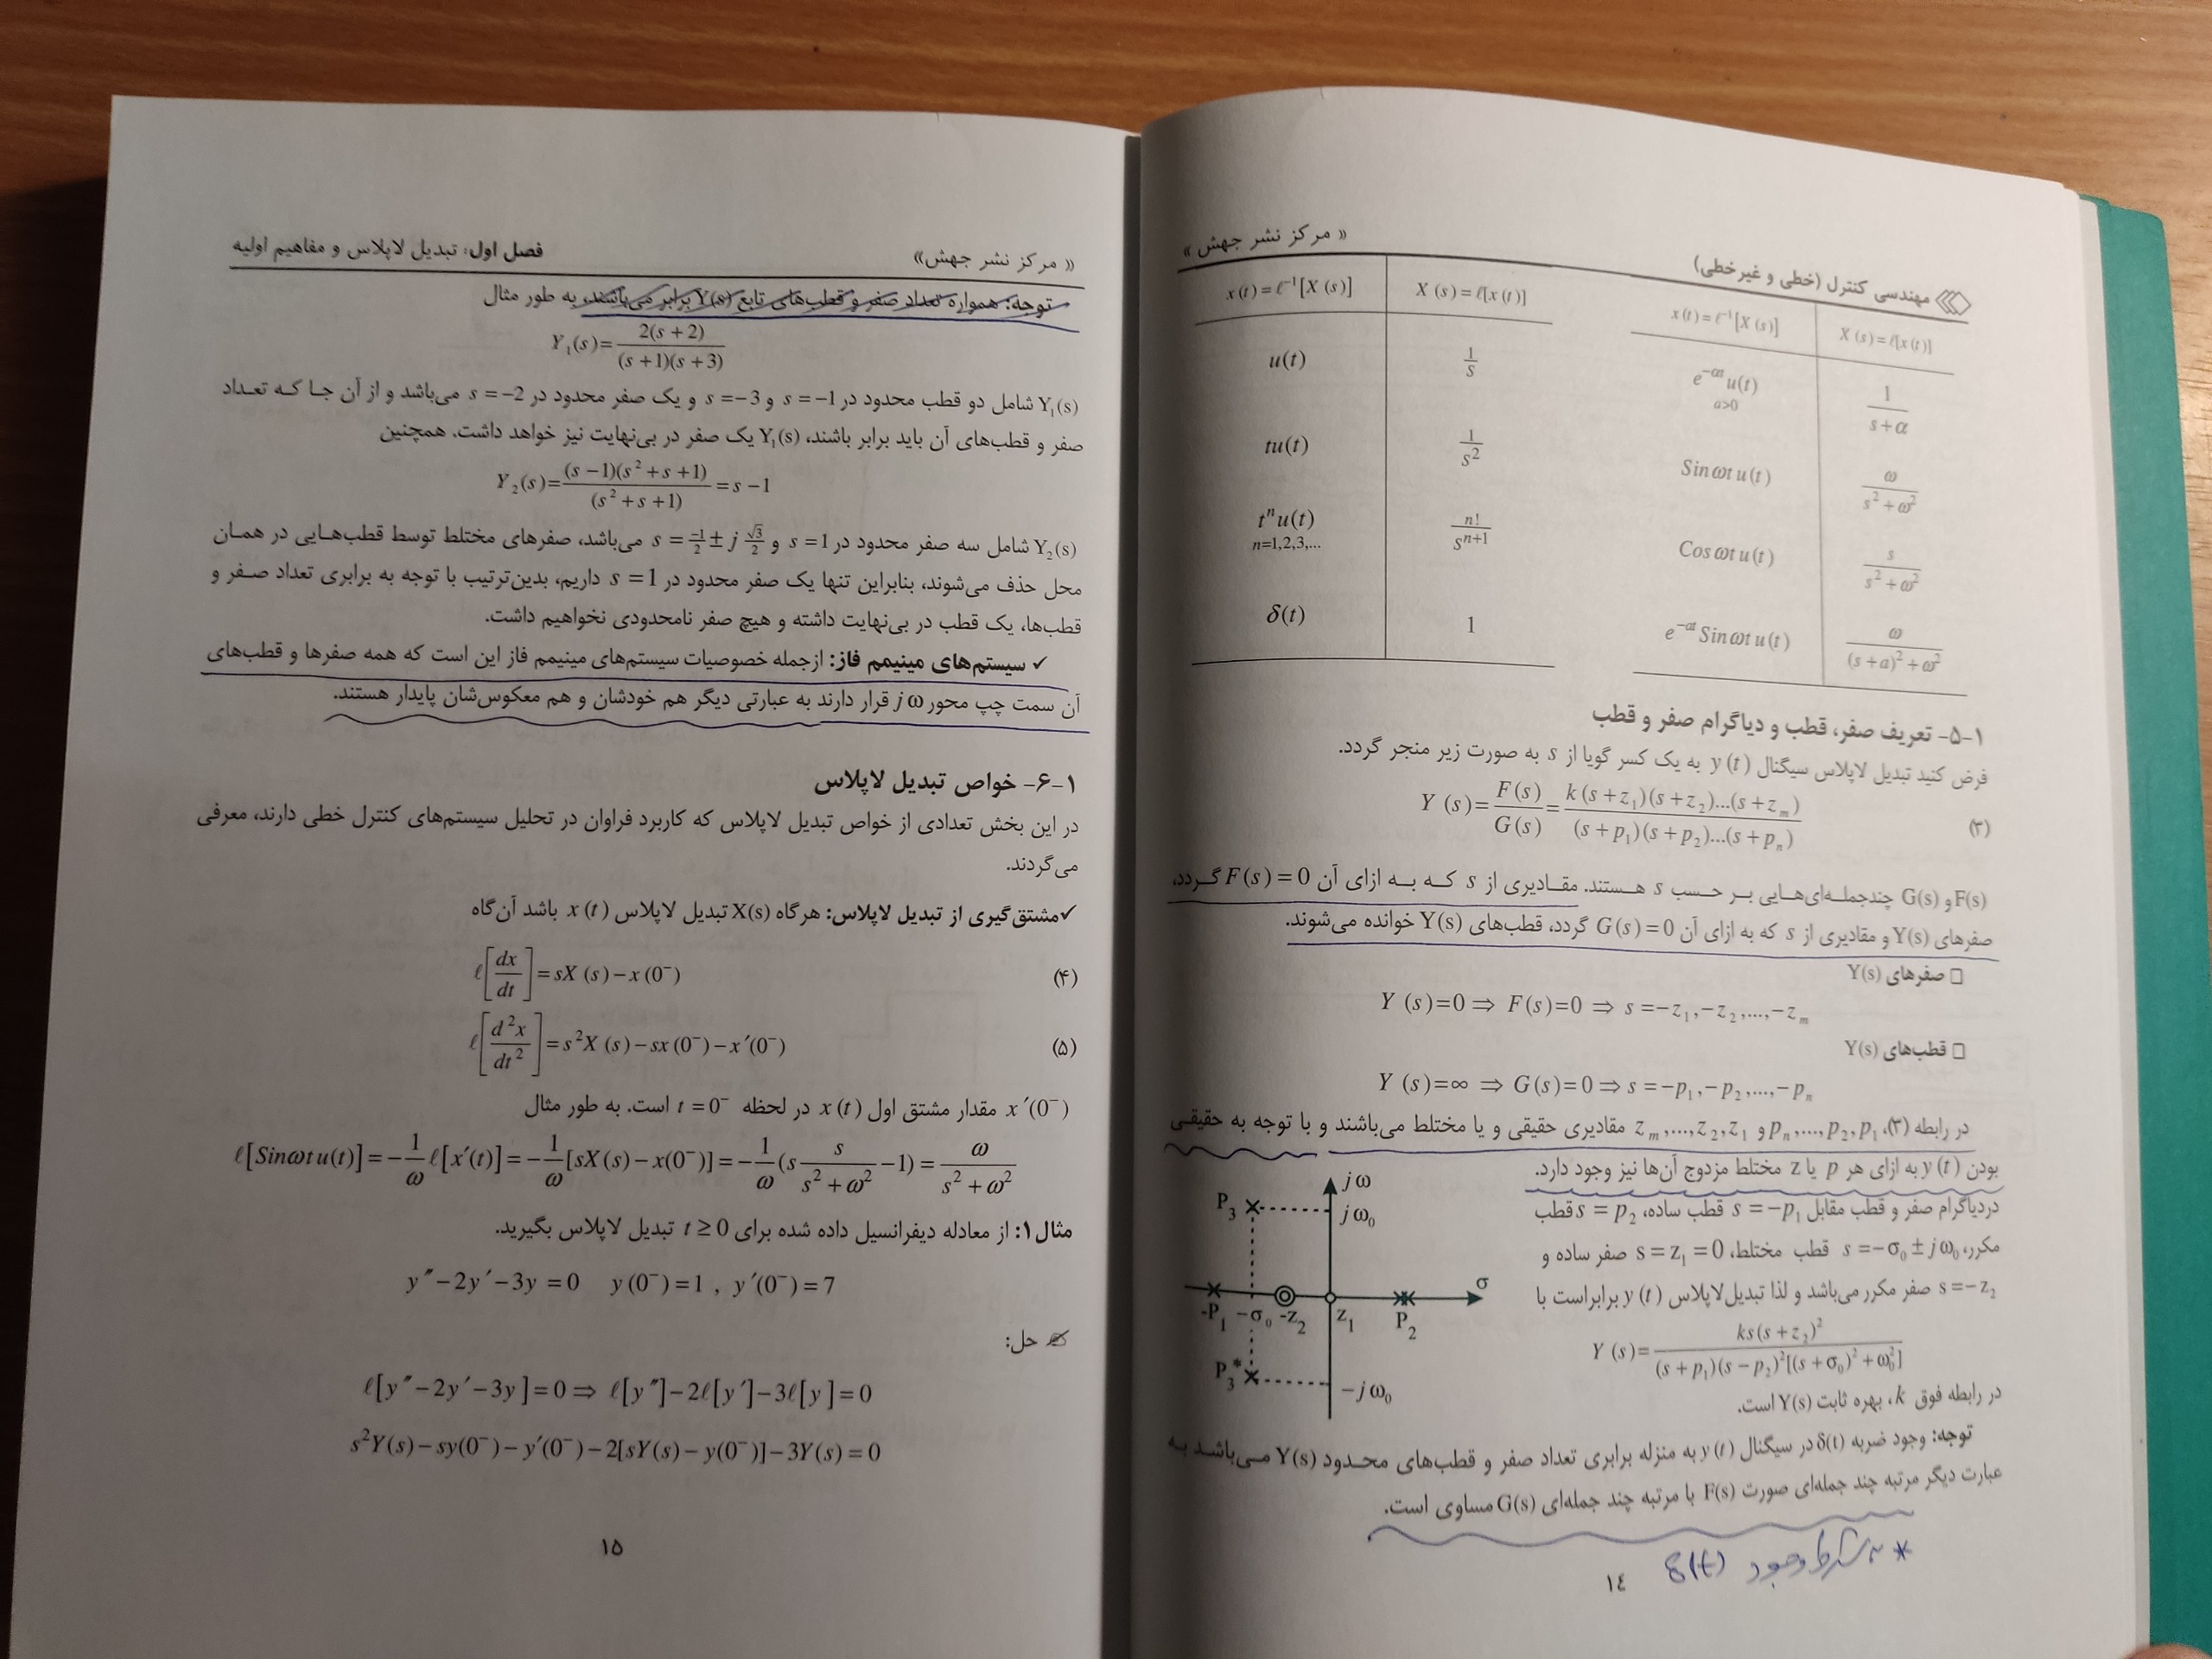 مهندسی کنترل (خطی و غیرخطی)
« مرکز نشر جهش »
x(t)=ℓ⁻¹[X(s)] X(s)=ℓ[x(t)]
u(t) 1/s
tu(t) 1/s²
tⁿu(t) n!/sⁿ⁺¹
n=1,2,3,...
δ(t) 1
x(t)=ℓ⁻¹[X(s)] X(s)=ℓ[x(t)]
e^(-αt) u(t) 1/(s+α)
a>0
Sin ωt u(t) ω/(s²+ω²)
Cos ωt u(t) s/(s²+ω²)
e^(-at) Sin ωt u(t) ω/((s+a)²+ω²)
۱-۵- تعریف صفر، قطب و دیاگرام صفر و قطب
فرض کنید تبدیل لاپلاس سیگنال y(t) به یک کسر گویا از s به صورت زیر منجر گردد.
Y(s)=F(s)/G(s)=k(s+z₁)(s+z₂)...(s+zₘ)/((s+p₁)(s+p₂)...(s+pₙ)) (۳)
F(s) و G(s) چندجمله‌ای‌هایی بر حسب s هستند. مقادیری از s که به ازای آن F(s)=0 گردد،
صفرهای Y(s) و مقادیری از s که به ازای آن G(s)=0 گردد، قطب‌های Y(s) خوانده می‌شوند.
□ صفرهای Y(s)
Y(s)=0 ⇒ F(s)=0 ⇒ s=-z₁,-z₂,...,-zₘ
□ قطب‌های Y(s)
Y(s)=∞ ⇒ G(s)=0 ⇒ s=-p₁,-p₂,...,-pₙ
در رابطه (۳)، p₁, p₂,..., pₙ و z₁, z₂,..., zₘ مقادیری حقیقی و یا مختلط می‌باشند و با توجه به حقیقی
بودن y(t) به ازای هر p یا z مختلط مزدوج آن‌ها نیز وجود دارد.
دردیاگرام صفر و قطب مقابل s=-p₁ قطب ساده، s=p₂ قطب
مکرر، s=-σ₀±jω₀ قطب مختلط، s=z₁=0 صفر ساده و
s=-z₂ صفر مکرر می‌باشد و لذا تبدیل لاپلاس y(t) برابر است با
Y(s)=ks(s+z₂)²/((s+p₁)(s-p₂)²[(s+σ₀)²+ω₀²])
در رابطه فوق k، بهره ثابت Y(s) است.
jω
P₃ jω₀
σ
-P₁ -σ₀ -z₂ z₁ P₂
P₃* -jω₀
توجه: وجود ضربه δ(t) در سیگنال y(t) به منزله برابری تعداد صفر و قطب‌های محدود Y(s) می‌باشد به
عبارت دیگر مرتبه چند جمله‌ای صورت F(s) با مرتبه چند جمله‌ای G(s) مساوی است.
* به شرط وجود δ(t)
١٤
« مرکز نشر جهش»
فصل اول: تبدیل لاپلاس و مفاهیم اولیه
توجه: همواره تعداد صفر و قطب‌های تابع Y(s) برابر می‌باشند، به طور مثال
Y₁(s)=2(s+2)/((s+1)(s+3))
Y₁(s) شامل دو قطب محدود در s=-1 و s=-3 و یک صفر محدود در s=-2 می‌باشد و از آن جا که تعداد
صفر و قطب‌های آن باید برابر باشند، Y₁(s) یک صفر در بی‌نهایت نیز خواهد داشت. همچنین
Y₂(s)=(s-1)(s²+s+1)/(s²+s+1)=s-1
Y₂(s) شامل سه صفر محدود در s=1 و s=-1/2±j√3/2 می‌باشد، صفرهای مختلط توسط قطب‌هایی در همان
محل حذف می‌شوند، بنابراین تنها یک صفر محدود در s=1 داریم، بدین‌ترتیب با توجه به برابری تعداد صفر و
قطب‌ها، یک قطب در بی‌نهایت داشته و هیچ صفر نامحدودی نخواهیم داشت.
✓ سیستم‌های مینیمم فاز: ازجمله خصوصیات سیستم‌های مینیمم فاز این است که همه صفرها و قطب‌های
آن سمت چپ محور jω قرار دارند به عبارتی دیگر هم خودشان و هم معکوس‌شان پایدار هستند.
۱-۶- خواص تبدیل لاپلاس
در این بخش تعدادی از خواص تبدیل لاپلاس که کاربرد فراوان در تحلیل سیستم‌های کنترل خطی دارند، معرفی
می‌گردند.
✓مشتق‌گیری از تبدیل لاپلاس: هرگاه X(s) تبدیل لاپلاس x(t) باشد آن‌گاه
ℓ[dx/dt]=sX(s)-x(0⁻) (۴)
ℓ[d²x/dt²]=s²X(s)-sx(0⁻)-x′(0⁻) (۵)
x′(0⁻) مقدار مشتق اول x(t) در لحظه t=0⁻ است. به طور مثال
ℓ[Sinωt u(t)]=-1/ω ℓ[x′(t)]=-1/ω[sX(s)-x(0⁻)]=-1/ω(s s/(s²+ω²)-1)=ω/(s²+ω²)
مثال ۱: از معادله دیفرانسیل داده شده برای t≥0 تبدیل لاپلاس بگیرید.
y″-2y′-3y=0 y(0⁻)=1 , y′(0⁻)=7
حل:
ℓ[y″-2y′-3y]=0 ⇒ ℓ[y″]-2ℓ[y′]-3ℓ[y]=0
s²Y(s)-sy(0⁻)-y′(0⁻)-2[sY(s)-y(0⁻)]-3Y(s)=0
۱۵